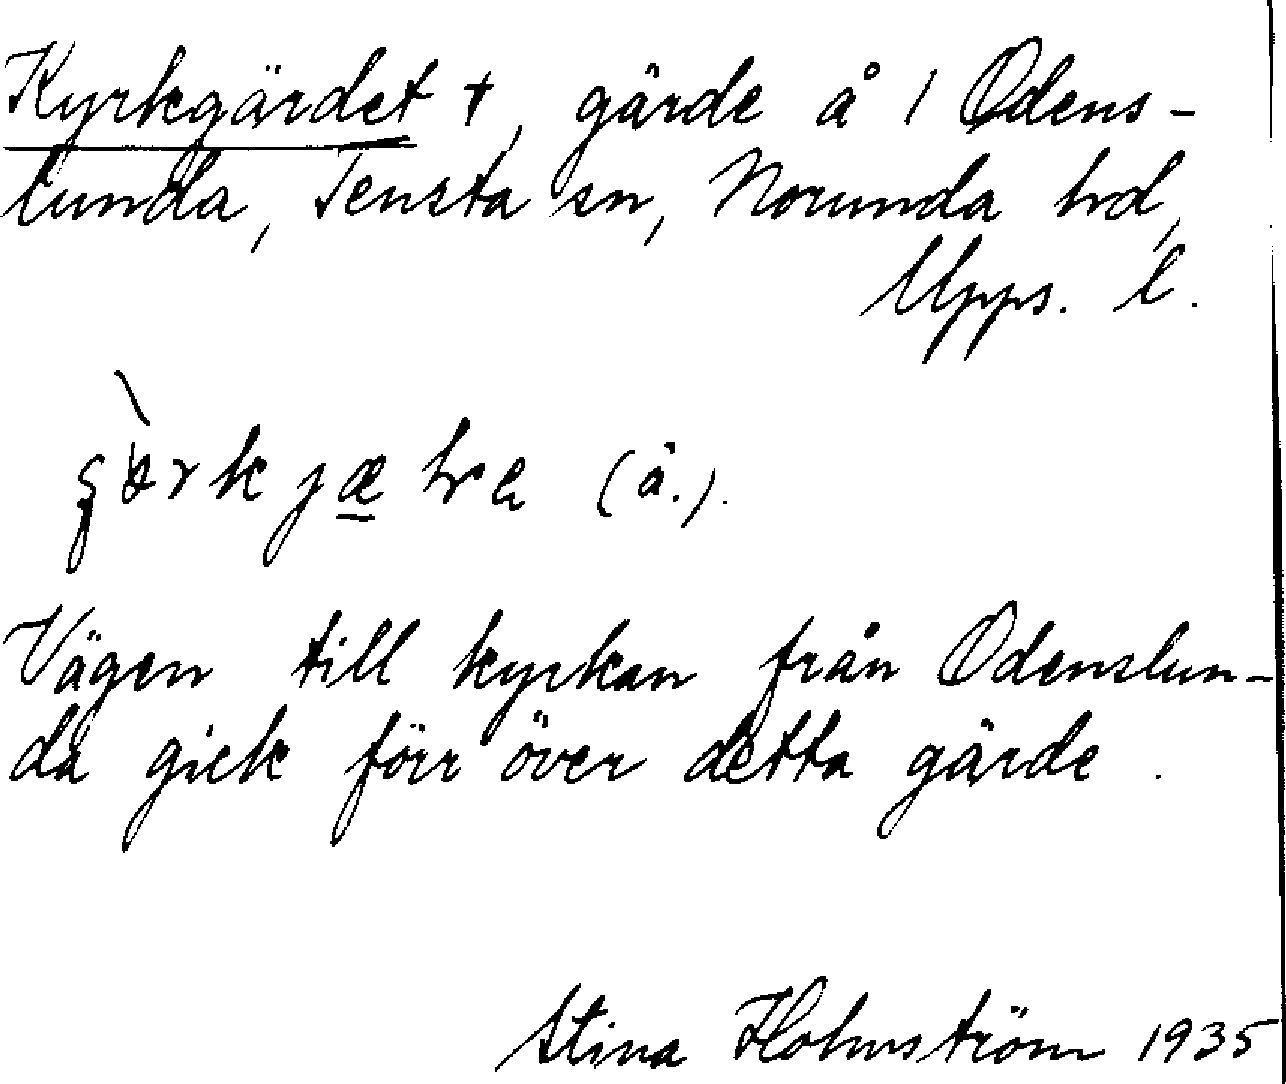 Kyrkgärdet †, gärde å 1 Odens-
lunda, Tensta sn, Norunda hd,
Upps. l.
(å.).
Vägen till kyrkan från Odenslun-
da gick förr över detta gärde.
Stina Holmström 1935